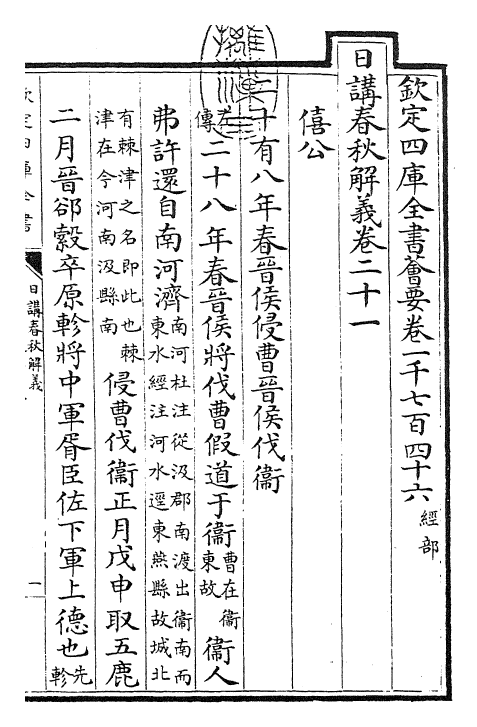 欽定四庫全書薈要卷一千七百四十六 經部
日講春秋解義卷二十一
僖公
二十有八年春晉侯侵曹晉侯伐衞
左傳 二十八年春晉侯將伐曹假道于衞 曹在衞東故 衞人
弗許還自南河濟 南河杜注從汲郡南渡出衞南而東水經注河水逕東燕縣故城北
有棘津之名即此也棘津在今河南汲縣南 侵曹伐衞正月戊申取五鹿
二月晉郤縠卒原軫將中軍胥臣佐下軍上德也 先軫
欽定四庫全書
日講春秋解義
一